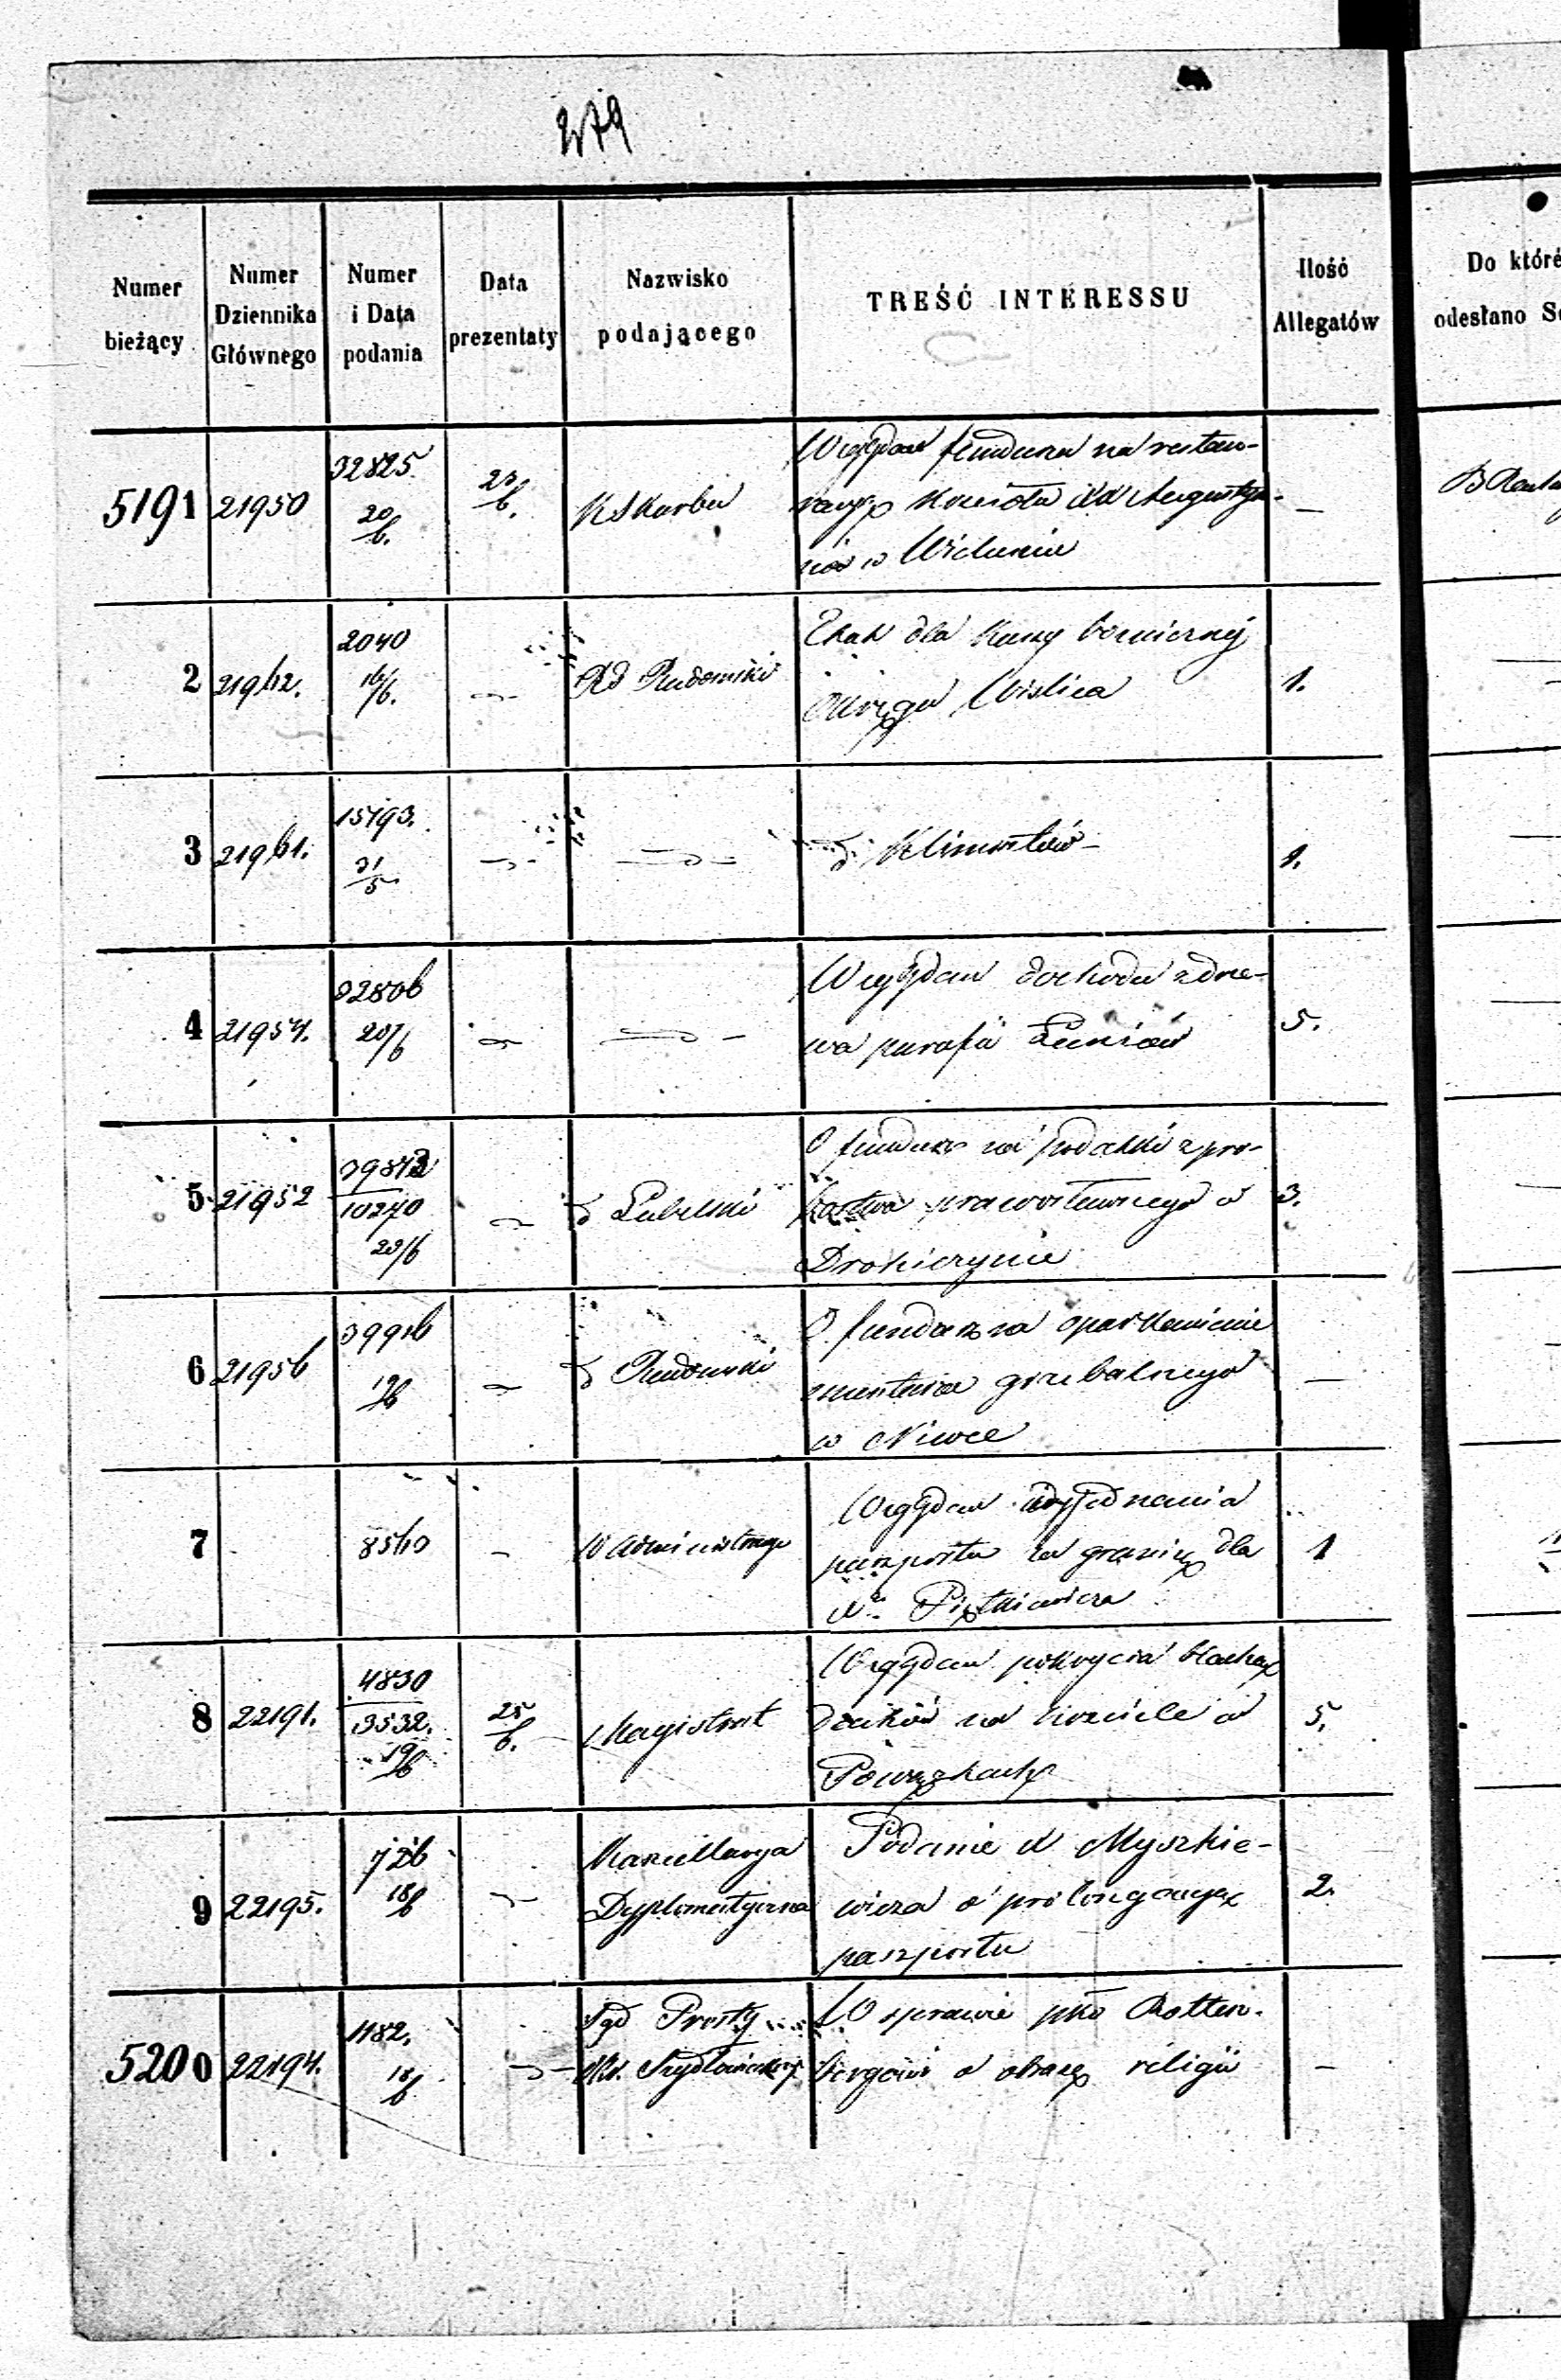 279
Numer bieżący
Numer Dziennika Głównego
Numer i Data podania
Data prezentaty
Nazwisko podającego
TREŚĆ INTERESSU
Ilość Allegatów
Do któré
odesłano S
5191 21950 32825 20/6. 23/6. K Skarbu
Względem funduszu na restau-
racyę Kościoła XX Augustya-
nów w Wieluniu —
2 2040 16/6. Rd Radomski
Etat dla Kassy
Okręgu Wislica 1.
3 21961. 31/5
d Klimontów 1.
4 32806 20/6
Względem dochodu z drze-
wa parafii 5.
5 21952 10270 20/6 d Lubelski
O fundusz na podatki z pro-
bostwa prawosławnego w 3.
Drohiczynie
6 21956 19/6 d Radomski
O fundusz na oparkanienie
cmentarza grzebalnego —
w Niwce
7 8560 W Administracyi
Względem wyjednania
paszportu za granicę dla 1
X. Piętkiewicza
8 22191. 4830 3532. 19/6 25/6. Magistrat
Względem pokrycia blachą
dachów na kościele w 5.
Powązkach
9 22195. 726 18/6 Kancellarya
Dyplomatyczna
Podanie X Myszkie-
wicza o prolongacyę 2.
paszportu
5200 22194. 1182. 18/6 Sąd Prosty
Szydłowieckiej
W sprawie pko Rotten-
bergowi o obrazę religii —